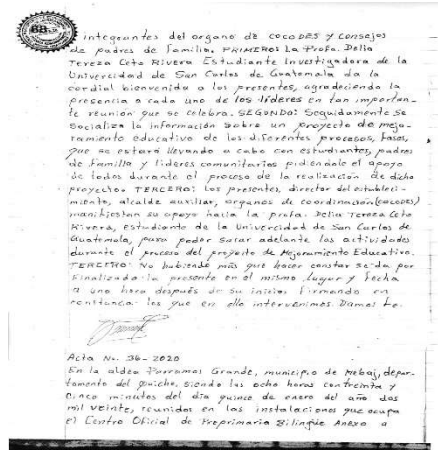 integrantes del organo de COCODES y consejos
de padres de familia. PRIMERO: La Profa. Delia
Tereza Ceto Rivera Estudiante Investigadora de la
Univercidad de San Carlos de Guatemala da la
cordial bienvenida a los presentes, agradeciendo la
presencia a cada uno de los líderes en tan importan-
te reunión que se celebra. SEGUNDO: Seguidamente se
Socializa la información sobre un proyecto de mejo-
ramiento educativo de los diferentes procesos, fases,
que se estará llevando a cabo con estudiantes, padres
de familia y líderes comunitarios pidiendole el apoyo
de todos durante el proceso de la realización de dicho
proyecto. TERCERO: Los presentes, director del estableci-
miento, alcalde auxiliar, organos de coordinación (cocodes)
manifiestan su apoyo hacia la profa. Delia Tereza Ceto
Rivera, estudiante de la Univercidad de San Carlos de
Guatemala, para poder sacar adelante las actividades
durante el proceso del proyecto de Mejoramiento Educativo.
TERCERO: No habiendo más que hacer constar se da por
finalizada la presente en el mismo lugar y fecha
a una hora después de su inicio firmando en
constancia los que en ella intervenimos. Damos fe.
Acta No. 36-2020
En la aldea Parramos Grande, municipio de Nebaj, depar-
tamento del quiche, siendo las ocho horas con treinta y
cinco minutos del día quince de enero del año dos
mil veinte, reunidos en las instalaciones que ocupa
el Centro Oficial de Preprimaria Bilingüe Anexo a